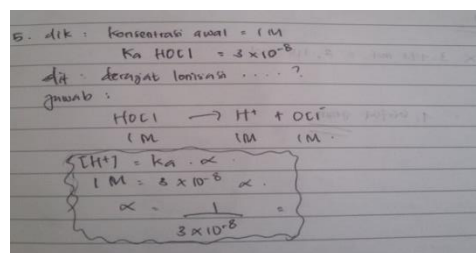 5. dik : konsentrasi awal = 1 M
Ka HOCl = 3 × 10⁻⁸
dit : derajat ionisasi .... ?
jawab :
HOCl → H⁺ + OCl⁻
1 M 1M 1M.
[H⁺] = Ka . α.
1 M = 3 × 10⁻⁸ α.
α = 1 =
3 × 10⁻⁸